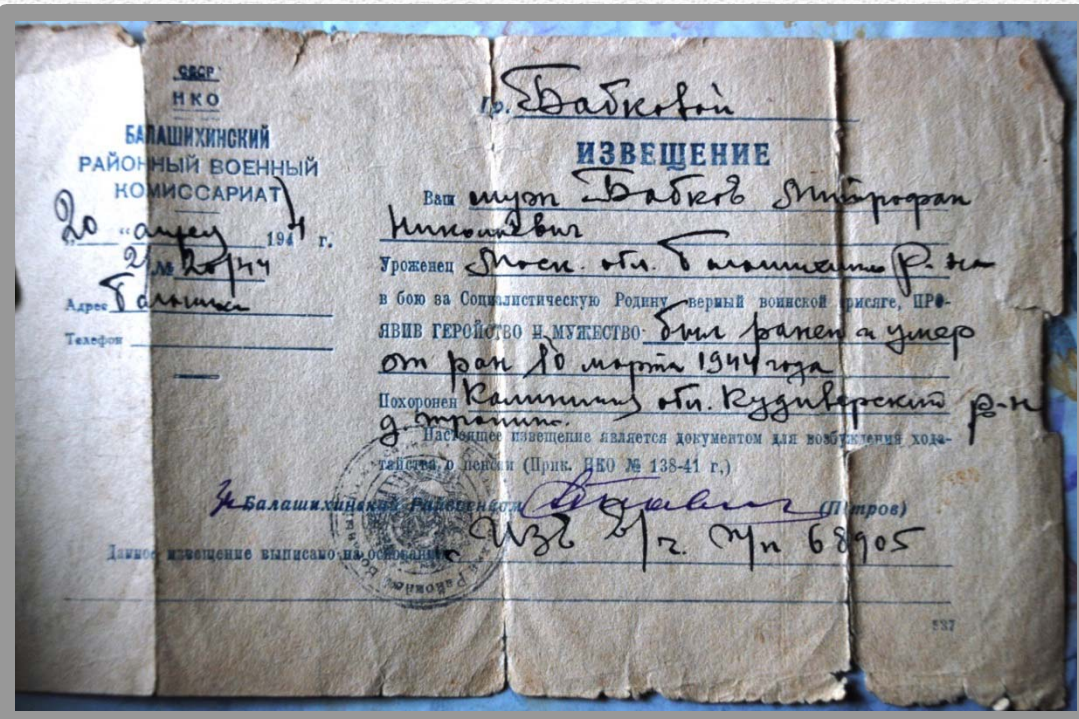 СССР
НКО
БАЛАШИХИНСКИЙ
РАЙОННЫЙ ВОЕННЫЙ
КОМИССАРИАТ
20 " апрел 1944 г.
№ 20/44
Адрес Балашиха
Телефон
Гр. Бабковой
ИЗВЕЩЕНИЕ
Ваш муж Бабков Митрофан
Николаевич
Уроженец Моск. обл. Балашихинс р-на
в бою за Социалистическую Родину, верный воинской присяге, ПРО-
ЯВИВ ГЕРОЙСТВО И МУЖЕСТВО был ранен и умер
от ран 10 марта 1944 года
Похоронен Калининск обл. Кудиверский р-н
д. тронино.
Настоящее извещение является документом для возбуждения хода-
тайства о пенсии (Прик. НКО № 138-41 г.)
Балашихинский Райвоенком (Петров)
Данное извещение выписано на основании Изв в/ч. п/п 68905
537